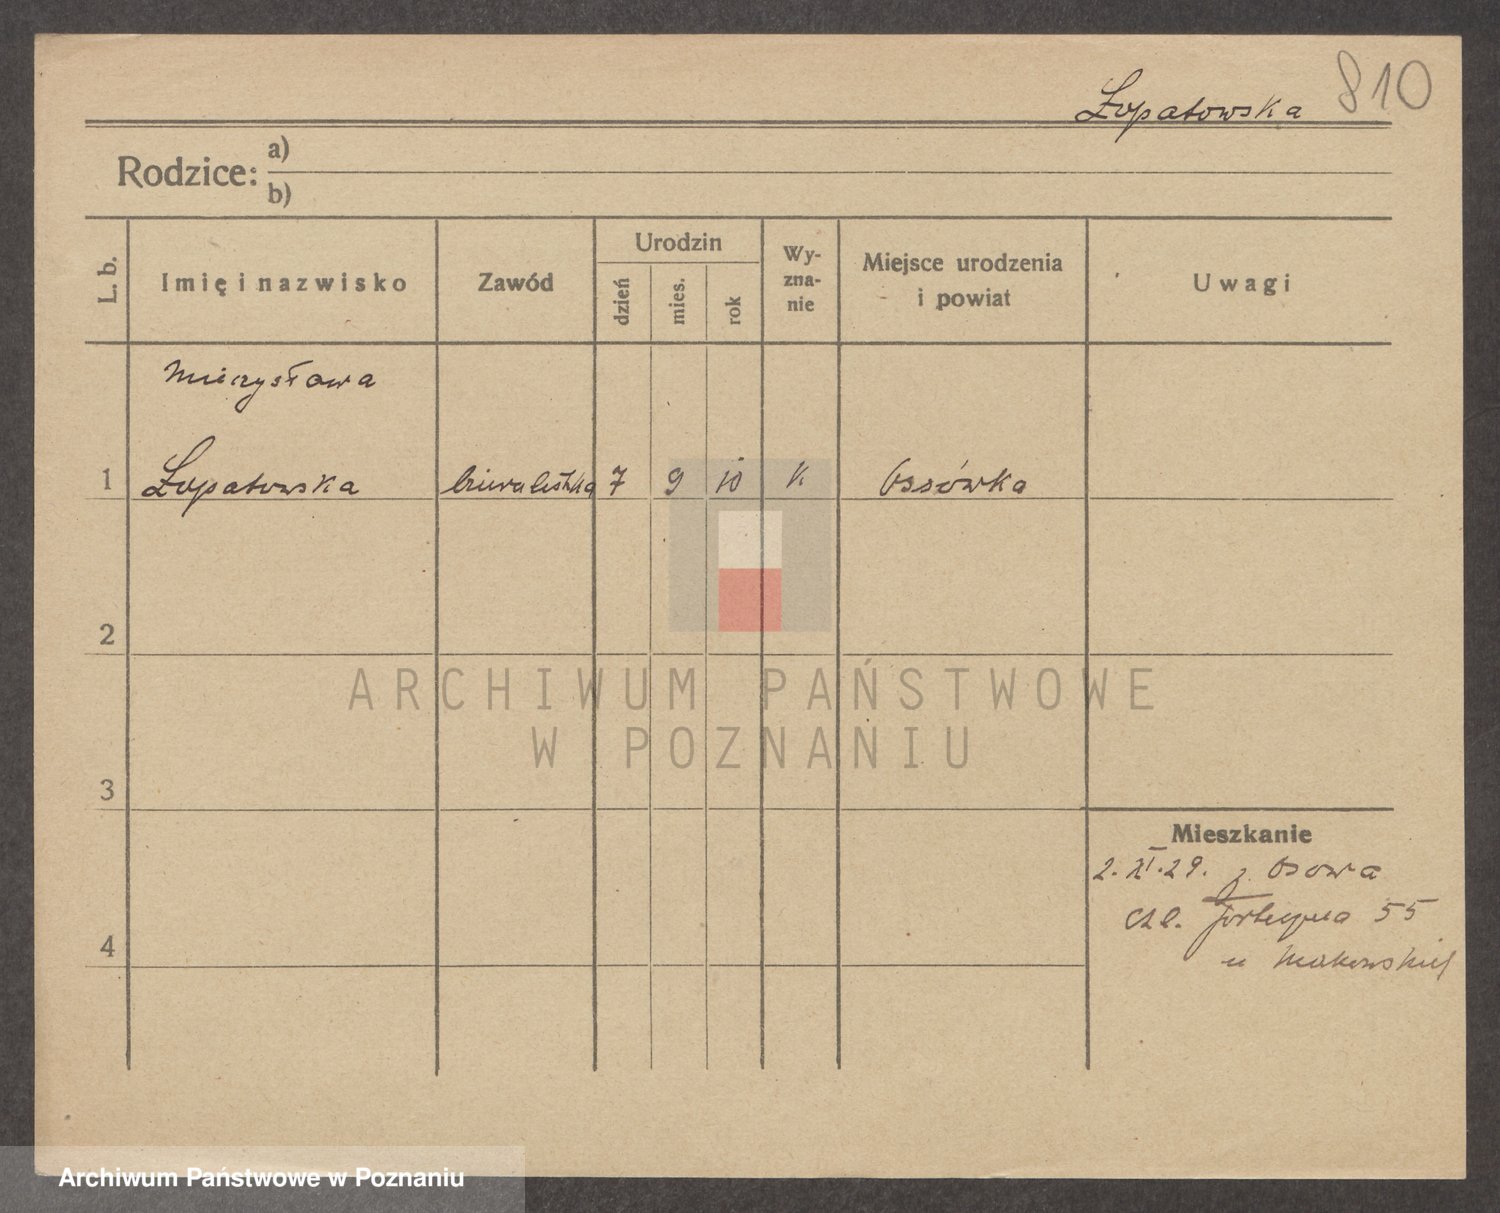 Łopatowska 810
Rodzice: a)
b)
L. b.
Imię i nazwisko
Zawód
Urodzin
dzień
mies.
rok
Wy-
zna-
nie
Miejsce urodzenia
i powiat
Uwagi
Mieczysława
1 Łopatowska biuralistka 7 9 10 K Ossówka
2
3
4
Mieszkanie
2. XI. 29. z Osowa
55
u Makowskiej
ARCHIWUM PAŃSTWOWE
W POZNANIU
Archiwum Państwowe w Poznaniu